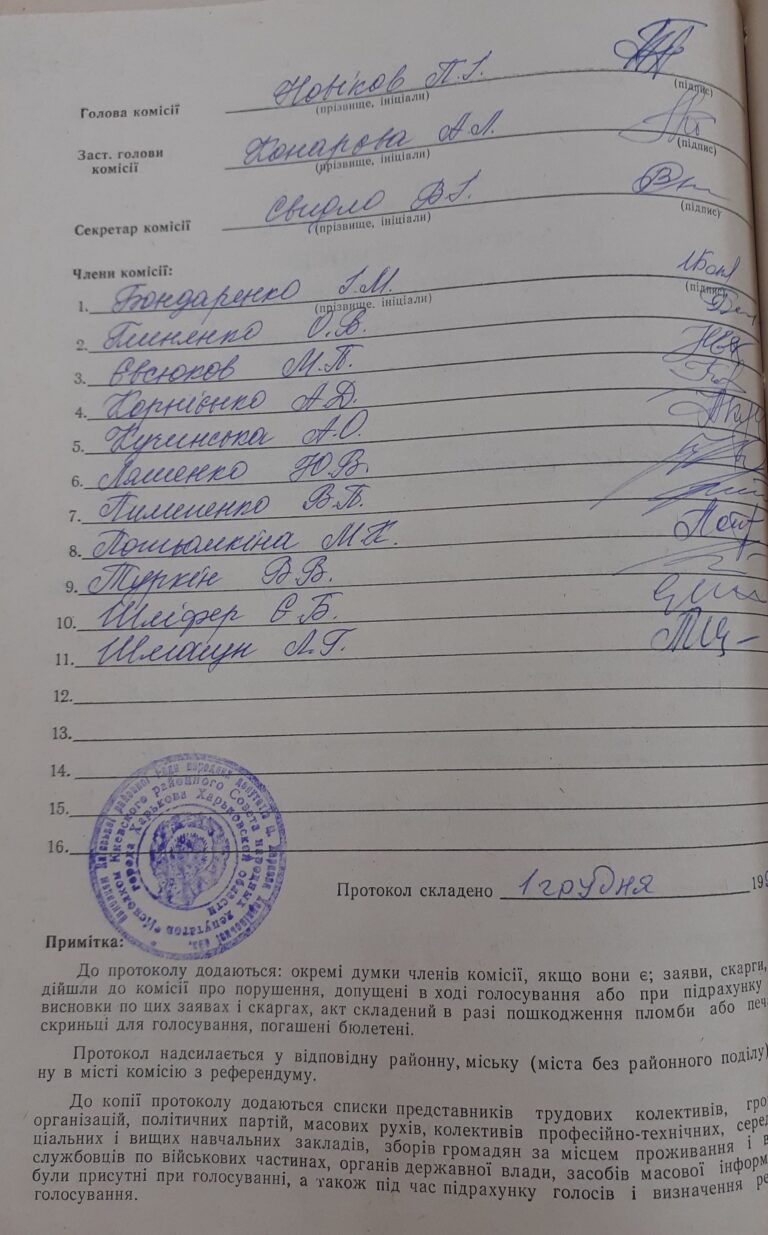 Голова комісії Новіков П.І.
(прізвище, ініціали) (підпис)
Заст. голови Конарова А.Л.
комісії (прізвище, ініціали) (підпис)
Секретар комісії Свидло В.І.
(прізвище, ініціали) (підпис)
Члени комісії:
1. Бондаренко І.М.
(прізвище, ініціали) (підпис)
2. О.В.
3. Євсюков М.П.
4. Корнієнко А.Д.
5. Кучинська А.О.
6. Ляшенко Ю.В.
7. Пимененко В.П.
8. Потьомкіна М.К.
9. Туркін В.В.
10. Шліфер Є.Б.
11. Л.Г.
12.
13.
14.
15.
16.
Исполком Киевского районного Совета народных депутатов
города Харькова Харьковской области
Протокол складено 1 грудня 199
Примітка:
До протоколу додаються: окремі думки членів комісії, якщо вони є; заяви, скарги,
дійшли до комісії про порушення, допущені в ході голосування або при підрахунку
висновки по цих заявах і скаргах, акт складений в разі пошкодження пломби або печ
скриньці для голосування, погашені бюлетені.
Протокол надсилається у відповідну районну, міську (міста без районного поділу)
ну в місті комісію з референдуму.
До копії протоколу додаються списки представників трудових колективів, гро
організацій, політичних партій, масових рухів, колективів професійно-технічних, серед
ціальних і вищих навчальних закладів, зборів громадян за місцем проживання і в
службовців по військових частинах, органів державної влади, засобів масової інформ
були присутні при голосуванні, а також під час підрахунку голосів і визначення ре
голосування.